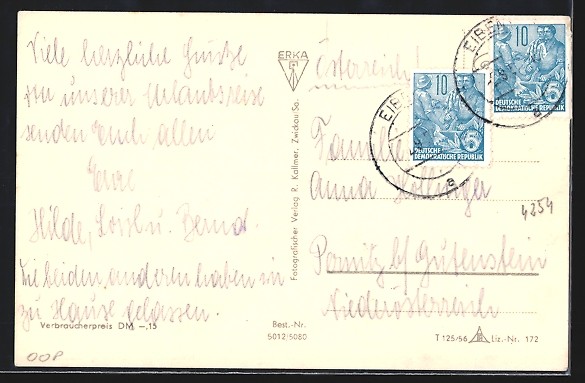 Viele herzliche Grüße
von unserer Urlaubsreise
senden Euch allen
Eure
Hilde, u. Bernd.
Die beiden anderen haben wir
zu Hause gelassen.
Verbraucherpreis DM –,15
OOP
ERKA
Fotografischer Verlag R. Kallmer, Zwickau/Sa.
Best.-Nr.
5012/5080
EIBE
10
DEUTSCHE
DEMOKRATISCHE REPUBLIK
5
a
EIBE
10
DEUTSCHE
DEMOKRATISCHE REPUBLIK
5
a
Österreich!
Familie
Anna Hollinger
4254
b/ Gutenstein
Niederösterreich
T 125/56 Liz.-Nr. 172